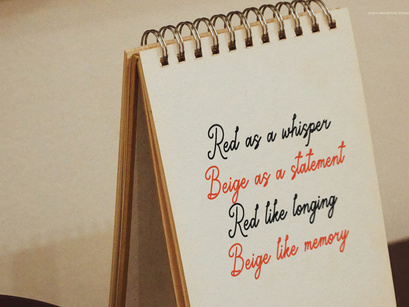 Red as a whisper
Beige as a statement
Red like longing
Beige like memory